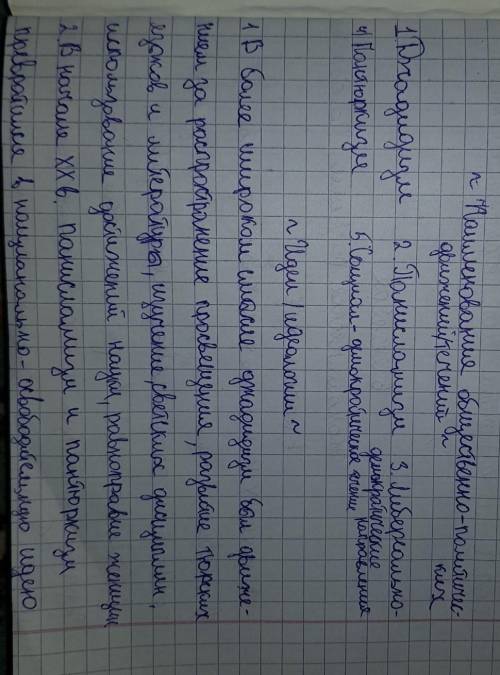 ~ Наименования общественно-политичес-
ких
движений/течений ~
1 Джадидизм 2. Панисламизм 3. Либерально-
демократические
4 Пантюркизм 5. Социал-демократические течение направления
~ Идеи / идеологии ~
1 В более широком смысле джадидизм был движе-
нием за распространение просвещения, развитие тюрских
языков и литературы, изучение светских дисциплин,
использование достижений науки, равноправие женщин
2 В начале XX в. панисламизм и пантюркизм
превратился в национально-освободительную идею